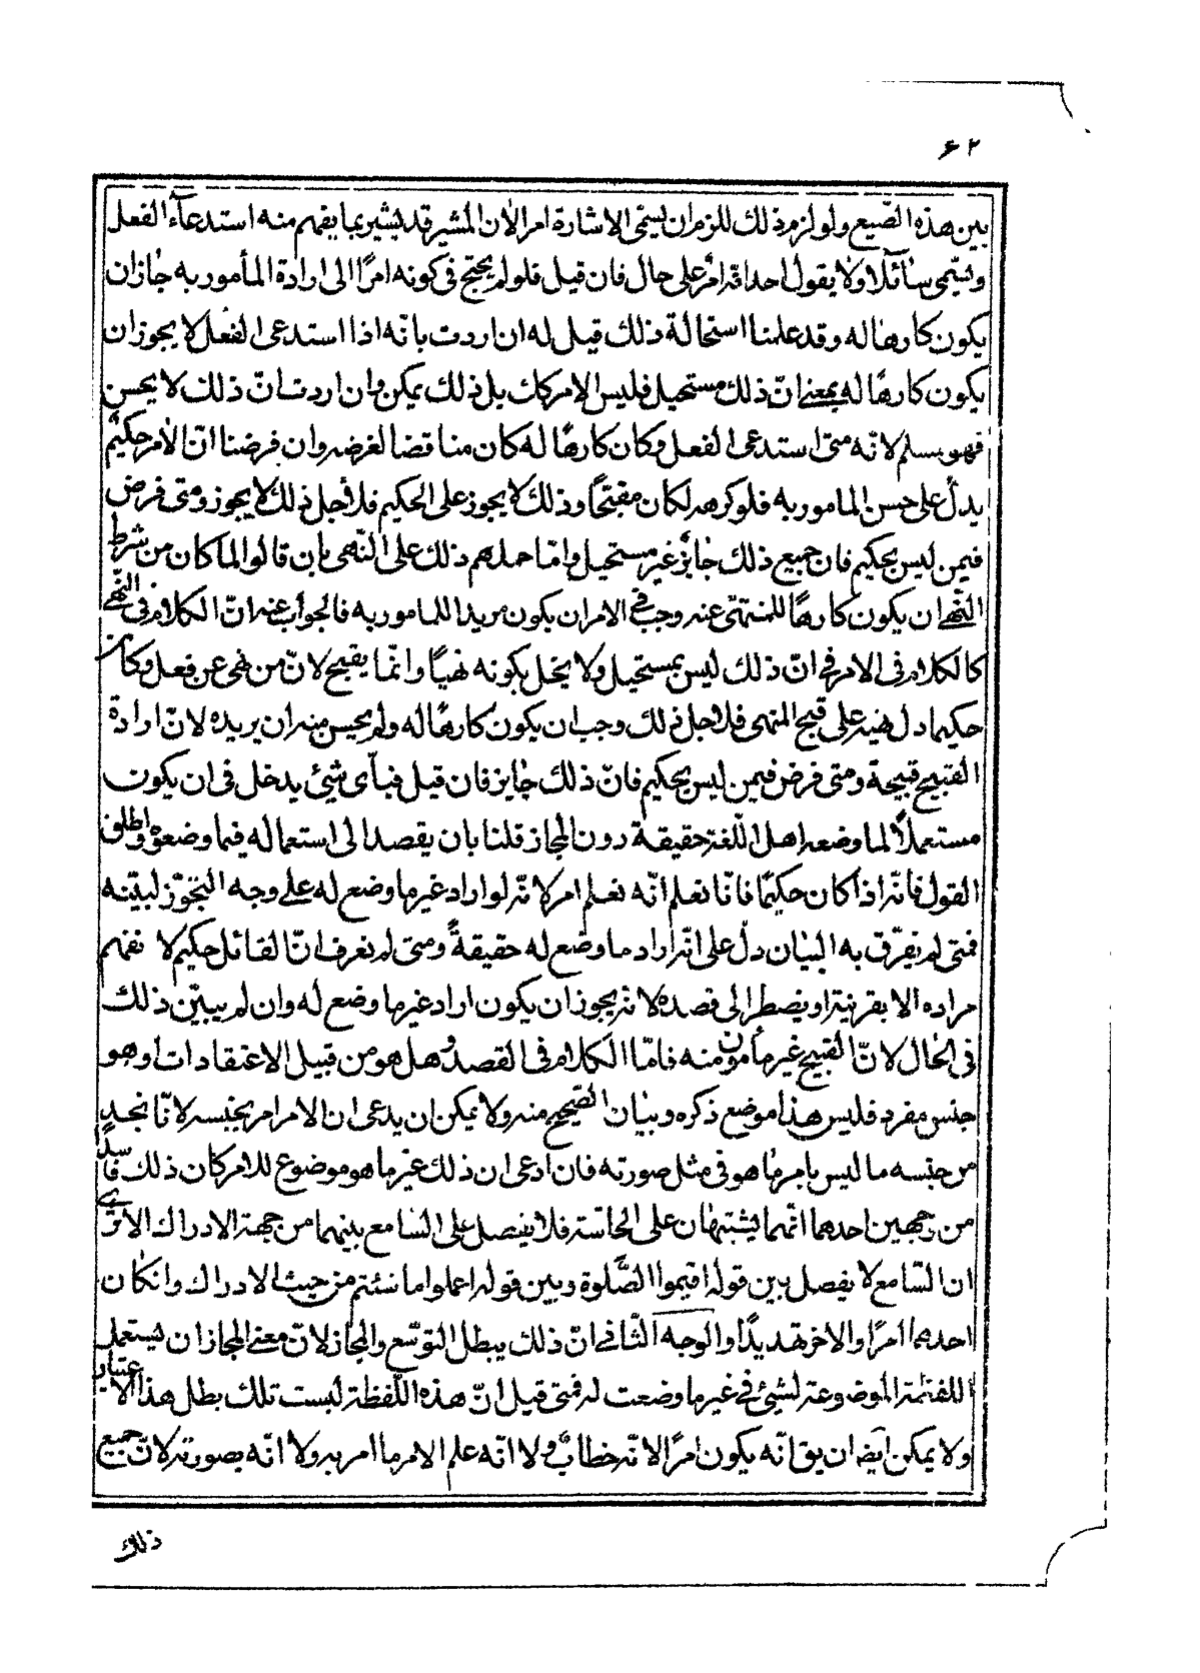 ۶۲
بين هذه الصّيغ ولو لزم ذلك للزم ان يسمّى الاشارة امرا لان المشير قد يشير بما يفهم منه استدعآء الفعل
ويسمّى سآئلا ولا يقول احد انّه امر على حال فان قيل فلو لم يحتج في كونه امرًا الى ارادة المأمور به جاز ان
يكون كارها له وقد علمنا استحالة ذلك قيل له ان اردت بانّه اذا استدعى الفعل لا يجوز ان
يكون كارهًا له بمعنى انّ ذلك مستحيل فليس الامر كك بل ذلك يمكن وان اردت انّ ذلك لا يحسن
فهو مسلم لانّه متى استدعى الفعل وكان كارهًا له كان مناقضا لغرضه وان فرضنا انّ الامر حكيم
يدلّ على حسن المامور به فلو كرهه لكان مقبّحًا وذلك لا يجوز على الحكيم فلاجل ذلك لا يجوز ومتى فرض
فيمن ليس بحكيم فان جميع ذلك جايز غير مستحيل وامّا حملهم ذلك على النّهى بان قالوا لما كان من شرط
النّهى ان يكون كارهًا للمنتهى عنه وجب في الامر ان يكون مريدا للمامور به فالجواب عنه انّ الكلام في النّهى
كالكلام في الامر في انّ ذلك ليس بمستحيل ولا يخل بكونه نهيًا وانّما يقبح لانّ من نهى عن فعل وكان
حكيما دل نهيه على قبح المنهى فلاجل ذلك وجب ان يكون كارهًا له ولم يحسن منه ان يريده لانّ ارادة
القبيح قبيحة ومتى فرض فيمن ليس بحكيم فانّ ذلك جايز فان قيل فباّى شيئ يدخل في ان يكون
مستعملًا لما وضعه اهل اللّغة حقيقة دون المجاز قلنا بان يقصد الى استعماله فيما وضعوه واطلق
القول فانّه اذا كان حكيمًا فانّا نعلم انّه نعلم امر لانّه لو اراد غير ما وضع له على وجه التجوّز لبيّنه
فمتى لم يفرّق به البيان دلّ على انّه اراد ما وضع له حقيقةً ومتى لم نعرف انّ القائل حكيم لا نفهم
مراده الا بقرنية او يضطر الى قصده لانّه يجوز ان يكون اراد غير ما وضع له وان لم يبيّن ذلك
في الحال لانّ القبيح غير مأمون منه فامّا الكلام في القصد وهل هو من قبيل الاعتقادات او هو
جنس مفرد فليس هذا موضع ذكره وبيان الصّحيح منه ولا يمكن ان يدعى ان الامر امر بجنسه لانّا نجد
من جنسه ما ليس بامر ما هو في مثل صورته فان ادعى ان ذلك غير ما هو موضوع للامر كان ذلك فاسدًا
من وجهين احدهما انّهما يشتبهان على الحاسّة فلا يفصل على السّامع بينهما من جهة الادراك الا ترى
ان السّامع لا يفصل بين قوله اقيموا الصّلوة وبين قوله اعملوا ما شئتم من حيث الادراك وان كان
احدهما امرًا والاخر تهديدًا والوجه الثّانى انّ ذلك يبطل التوسّع والمجاز لانّ معنى المجاز ان يستعمل
اللفظة الموضوعة لشيئ في غير ما وضعت له فمتى قيل انّ هذه اللّفظة ليست تلك بطل هذا الاعتبار
ولا يمكن ايضا ان يق انّه يكون امرًا لانّه خطاب ولا انّه علم الامر ما امر به ولا انّه بصورته لانّ جميع
ذلك